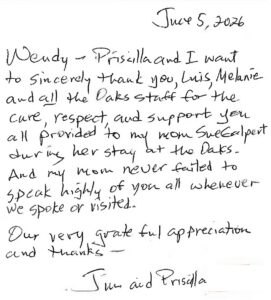 June 5, 2026
Wendy – Priscilla and I want
to sincerely thank you, Luis, Melanie
and all the Oaks staff for the
care, respect, and support you
all provided to my mom Sue Galpert
during her stay at the Oaks.
And my mom never failed to
speak highly of you all whenever
we spoke or visited.
Our very grateful appreciation
and thanks –
Jim and Priscilla